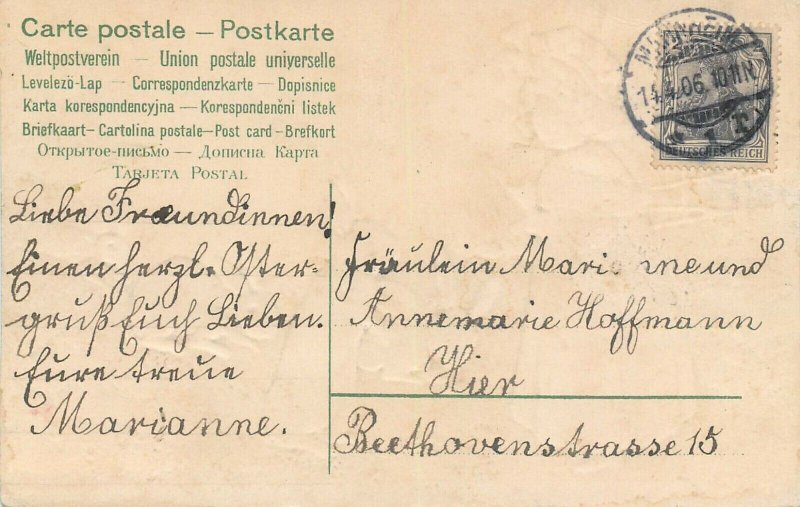 Carte postale – Postkarte
Weltpostverein – Union postale universelle
Levelező-Lap – Correspondenzkarte – Dopisnice
Karta korespondencyjna – Korespondenční listek
Briefkaart – Cartolina postale – Post card – Brefkort
Открытое-письмо – Дописна Карта
Tarjeta Postal
MANNHEIM
14.4.06. 10-11N.
1
DEUTSCHES REICH
Liebe Freundinnen!
Einen herzl. Oster-
gruß Euch Lieben.
Eure treue
Marianne.
Fräulein Mari ne und
Annemarie Hoffmann
Hier
Beethovenstrasse 15